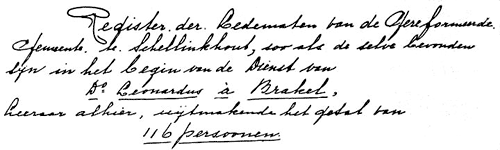 Register, der. Ledematen van de Gereformeerde.
Gemeente. te. Schellinkhout, soo als de selve bevonden
sijn in het begin van de Dienst van
Do Leonardus à Brakel,
Leeraar alhier, uijtmakende het getal van
116 persoonen.